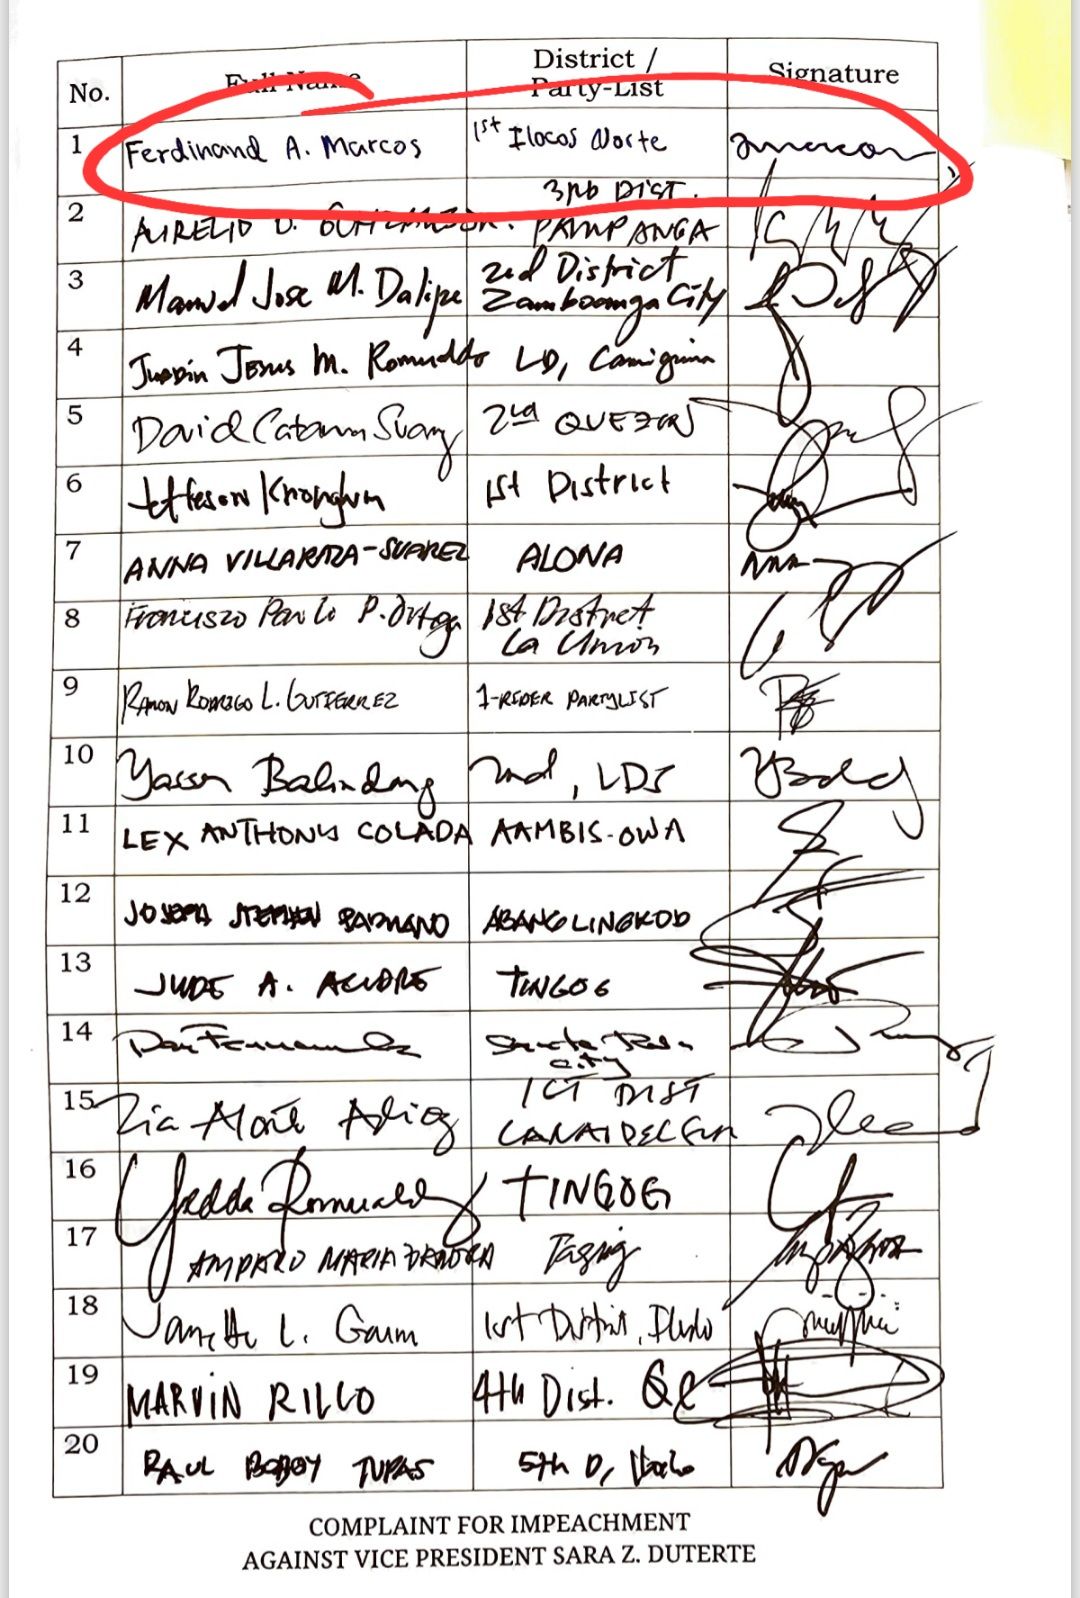 No. Full Name District / Party-List Signature
1 Ferdinand A. Marcos 1st Ilocos Norte
2 AURELIO D. 3RD DIST. PAMPANGA
3 Manuel Jose M. Dalipe 2nd District Zamboanga City
4 Jurdin Jesus M. Romualdo LD, Camiguin
5 David Catarina Suarez 2nd QUEZON
6 Jefferson Khonghun 1st District
7 ANNA VILLARAZA-SUAREZ ALONA
8 Francisco Paolo P. Ortega 1st District La Union
9 RAMON RODRIGO L. GUTIERREZ 1-RIDER PARTYLIST
10 Yasser Balindong 2nd, LDS
11 LEX ANTHONY COLADA AAMBIS-OWA
12 JOSEPH STEPHEN PADUANO ABANG LINGKOD
13 JUDE A. ACIDRE TINGOG
14 Dan Fernandez Santa Rosa City
15 Zia Alonto Adiong 1ST DIST LANAO DEL SUR
16 Yedda Romualdez TINGOG
17 AMPARO MARIA ZAMORA Taguig
18 Janette L. Garin 1st District, Iloilo
19 MARVIN RILLO 4th Dist. QC
20 RAUL BOBOY TUPAS 5th D, Iloilo
COMPLAINT FOR IMPEACHMENT
AGAINST VICE PRESIDENT SARA Z. DUTERTE